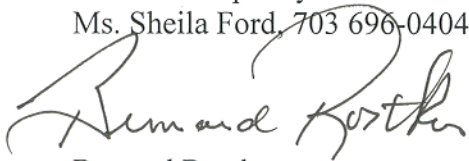 Ms. Sheila Ford, 703 696-0404
Bernard Rostker